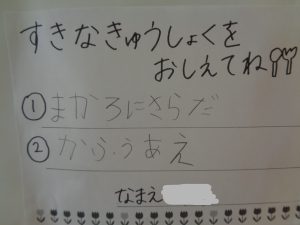 すきなきゅうしょくを
おしえてね
①まかろにさらだ
②かふぅあえ
なまえ